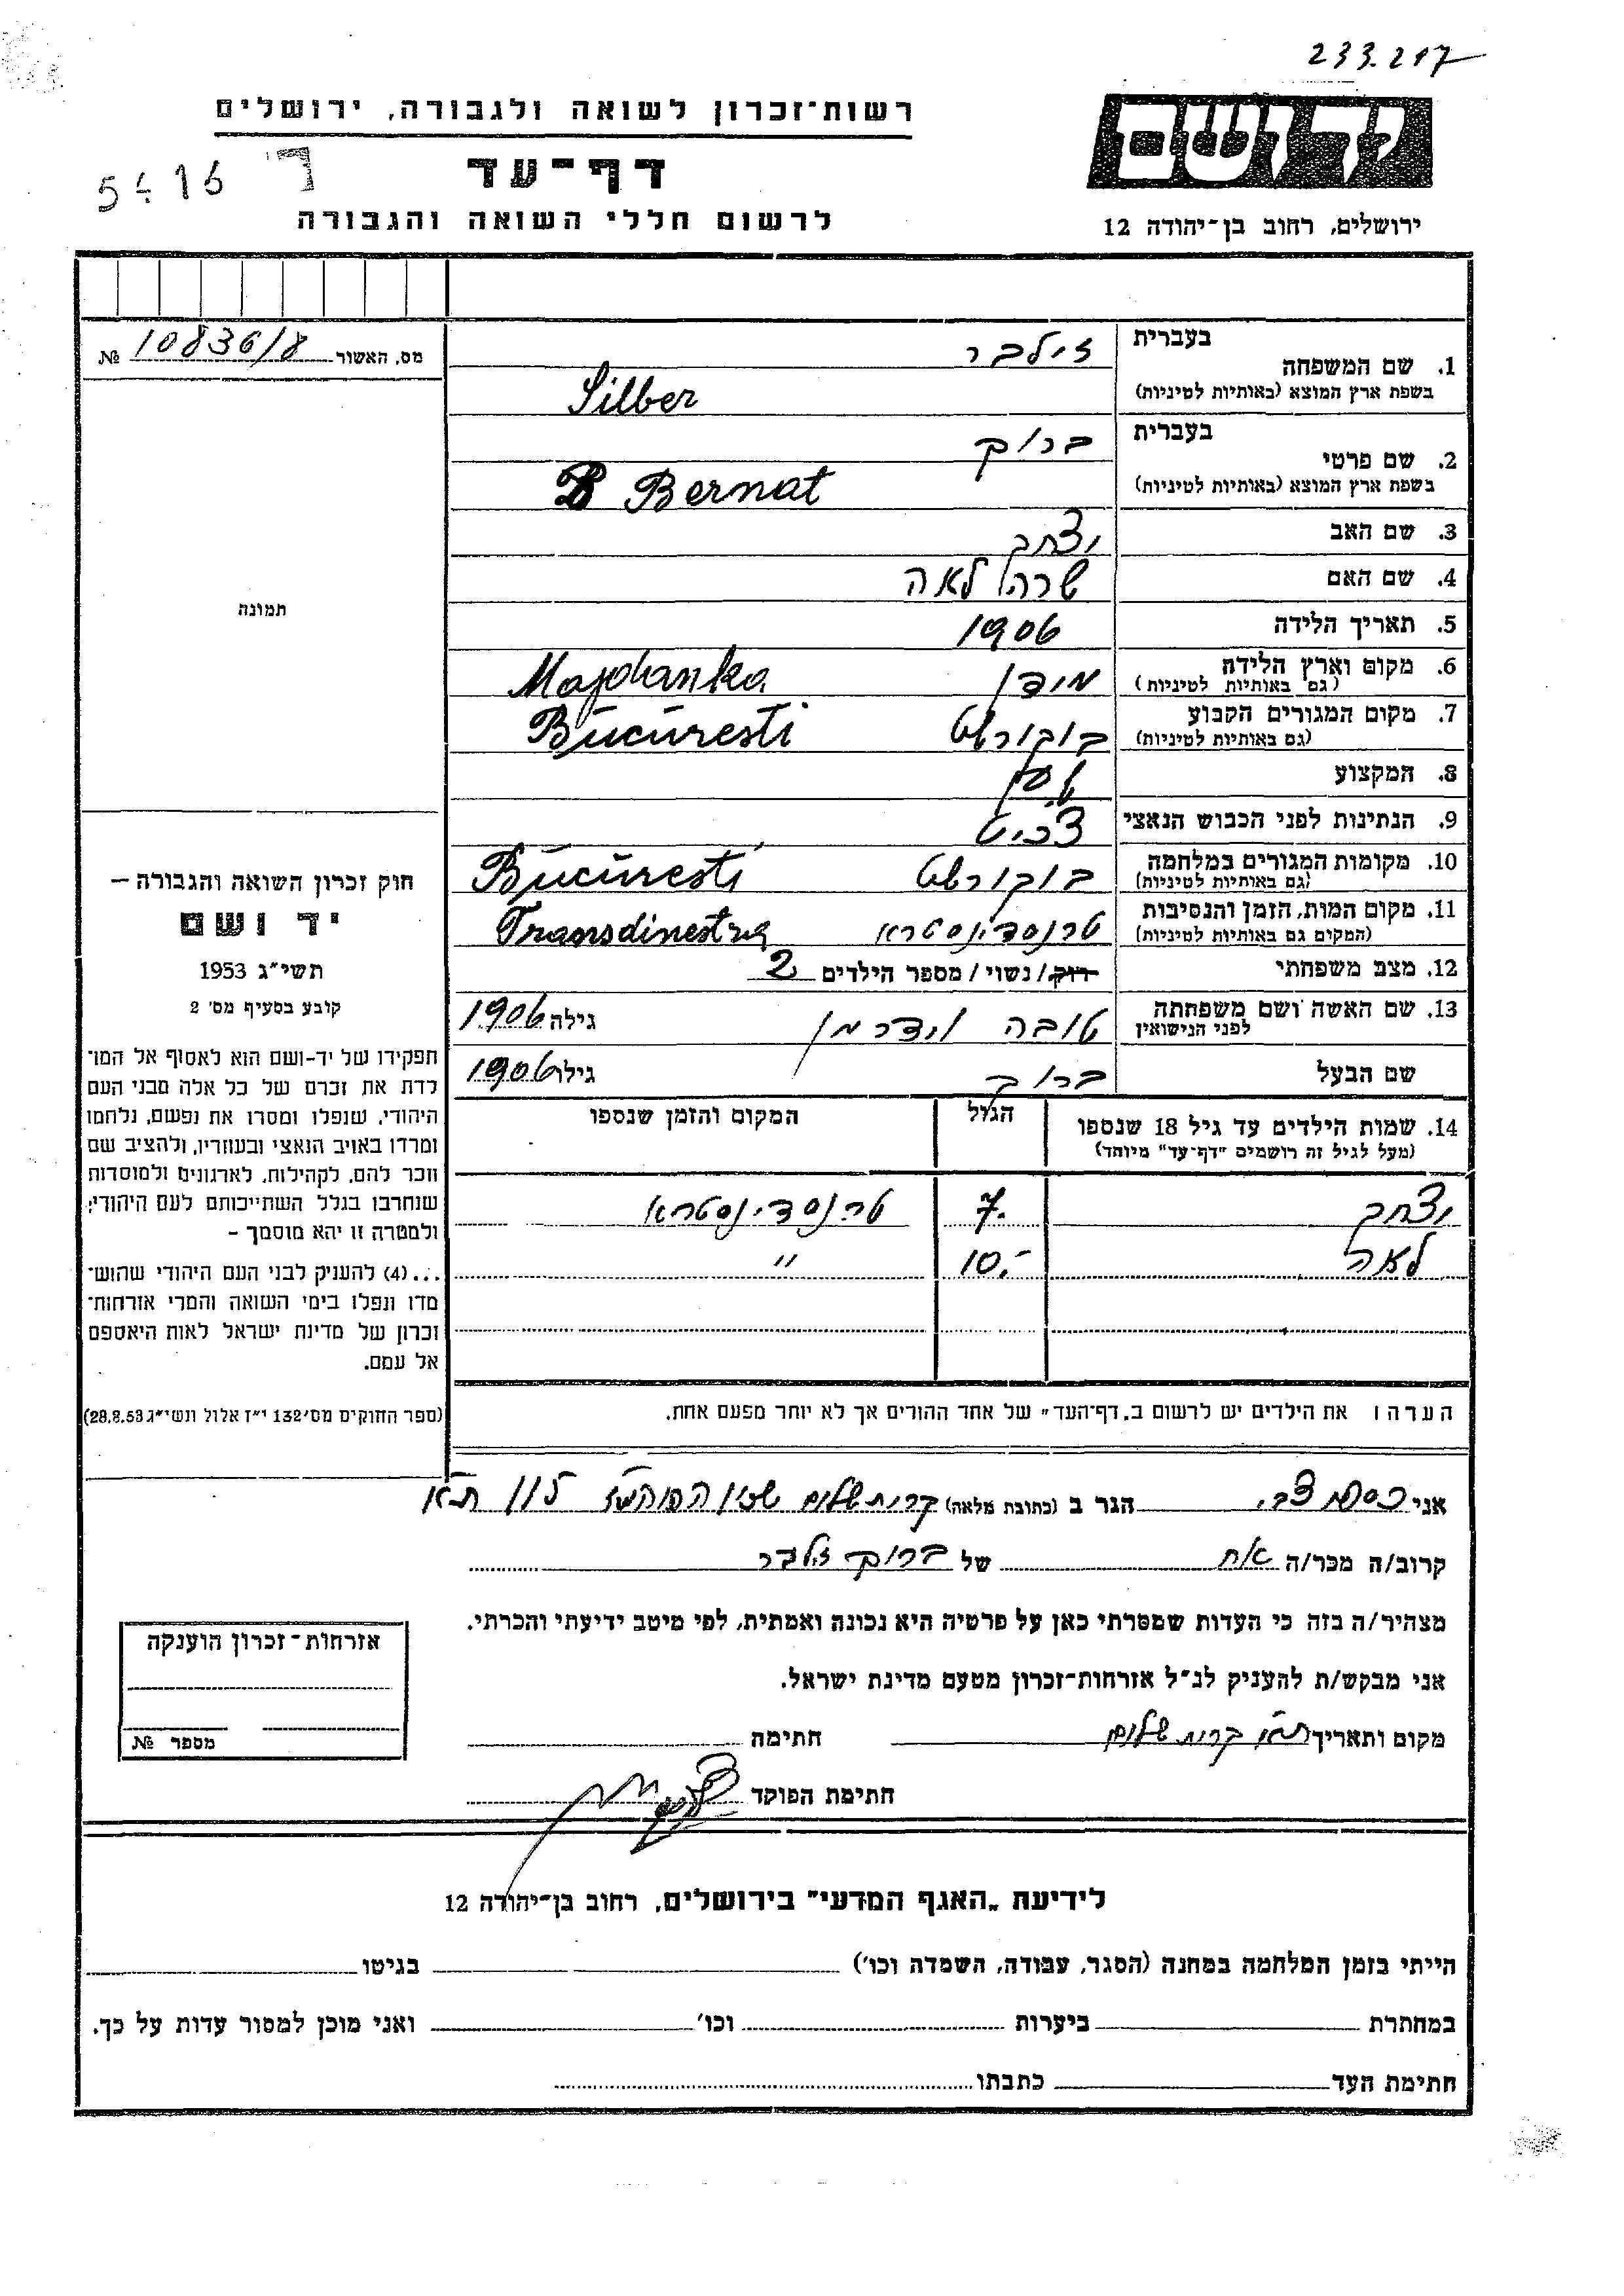 233.217
רשות־זכרון לשואה ולגבורה, ירושלים
דף־עד
לרשום חללי השואה והגבורה
ירושלים, רחוב בן־יהודה 12
מס. האשור 10836/8 №
תמונה
חוק זכרון השואה והגבורה –
יד ושם
תשי״ג 1953
קובע בסעיף מס׳ 2
תפקידו של יד-ושם הוא לאסוף אל המו־
לדת את זכרם של כל אלה מבני העם
היהודי, שנפלו ומסרו את נפשם, נלחמו
ומרדו באויב הנאצי ובעוזריו, ולהציב שם
וזכר להם, לקהילות, לארגונים ולמוסדות
שנחרבו בגלל השתייכותם לעם היהודי;
ולמטרה זו יהא מוסמך –
...(4) להעניק לבני העם היהודי שהוש־
מדו ונפלו בימי השואה והמרי אזרחות־
זכרון של מדינת ישראל לאות היאספם
אל עמם.
(ספר החוקים מס׳ 132 י״ז אלול תשי״ג 28.8.53)
בעברית זילבר
1. שם המשפחה
בשפת ארץ המוצא (באותיות לטיניות) Silber
בעברית ברוך
2. שם פרטי
בשפת ארץ המוצא (באותיות לטיניות) B Bernat
3. שם האב יצחק
4. שם האם שרה לאה
5. תאריך הלידה 1906
6. מקום וארץ הלידה Majdanka
(גם באותיות לטיניות)
7. מקום המגורים הקבוע בוקורשט Bucuresti
(גם באותיות לטיניות)
8. המקצוע
9. הנתינות לפני הכבוש הנאצי
10. מקומות המגורים במלחמה בוקורשט Bucuresti
(גם באותיות לטיניות)
11. מקום המות, הזמן והנסיבות טרנסדינסטרא Transdinestria
(המקום גם באותיות לטיניות)
12. מצב משפחתי רוק/נשוי/מספר הילדים 2
13. שם האשה ושם משפחתה טובה וידרמן גילה 1906
לפני הנישואין
שם הבעל ברוך גילו 1906
14. שמות הילדים עד גיל 18 שנספו הגיל המקום והזמן שנספו
(מעל לגיל זה רושמים "דף־עד" מיוחד)
יצחק 7. טרנסדינסטרא
לאה 10.- "
הערה: את הילדים יש לרשום ב„דף־העד" של אחד ההורים אך לא יותר מפעם אחת.
אני הגר ב (כתובת מלאה) קרית שלום ת״א
קרוב/ה מכר/ה אח של ברוך זילבר
מצהיר/ה בזה כי העדות שמסרתי כאן על פרטיה היא נכונה ואמתית, לפי מיטב ידיעתי והכרתי.
אני מבקש/ת להעניק לנ״ל אזרחות־זכרון מטעם מדינת ישראל.
מקום ותאריך ת״א קרית שלום חתימה
חתימת הפוקד
אזרחות־זכרון הוענקה
מספר №
לידיעת „האגף המדעי" בירושלים, רחוב בן־יהודה 12
הייתי בזמן המלחמה במחנה (הסגר, עבודה, השמדה וכו׳) בגיטו
במחתרת ביערות וכו׳ ואני מוכן למסור עדות על כך.
חתימת העד כתבתו